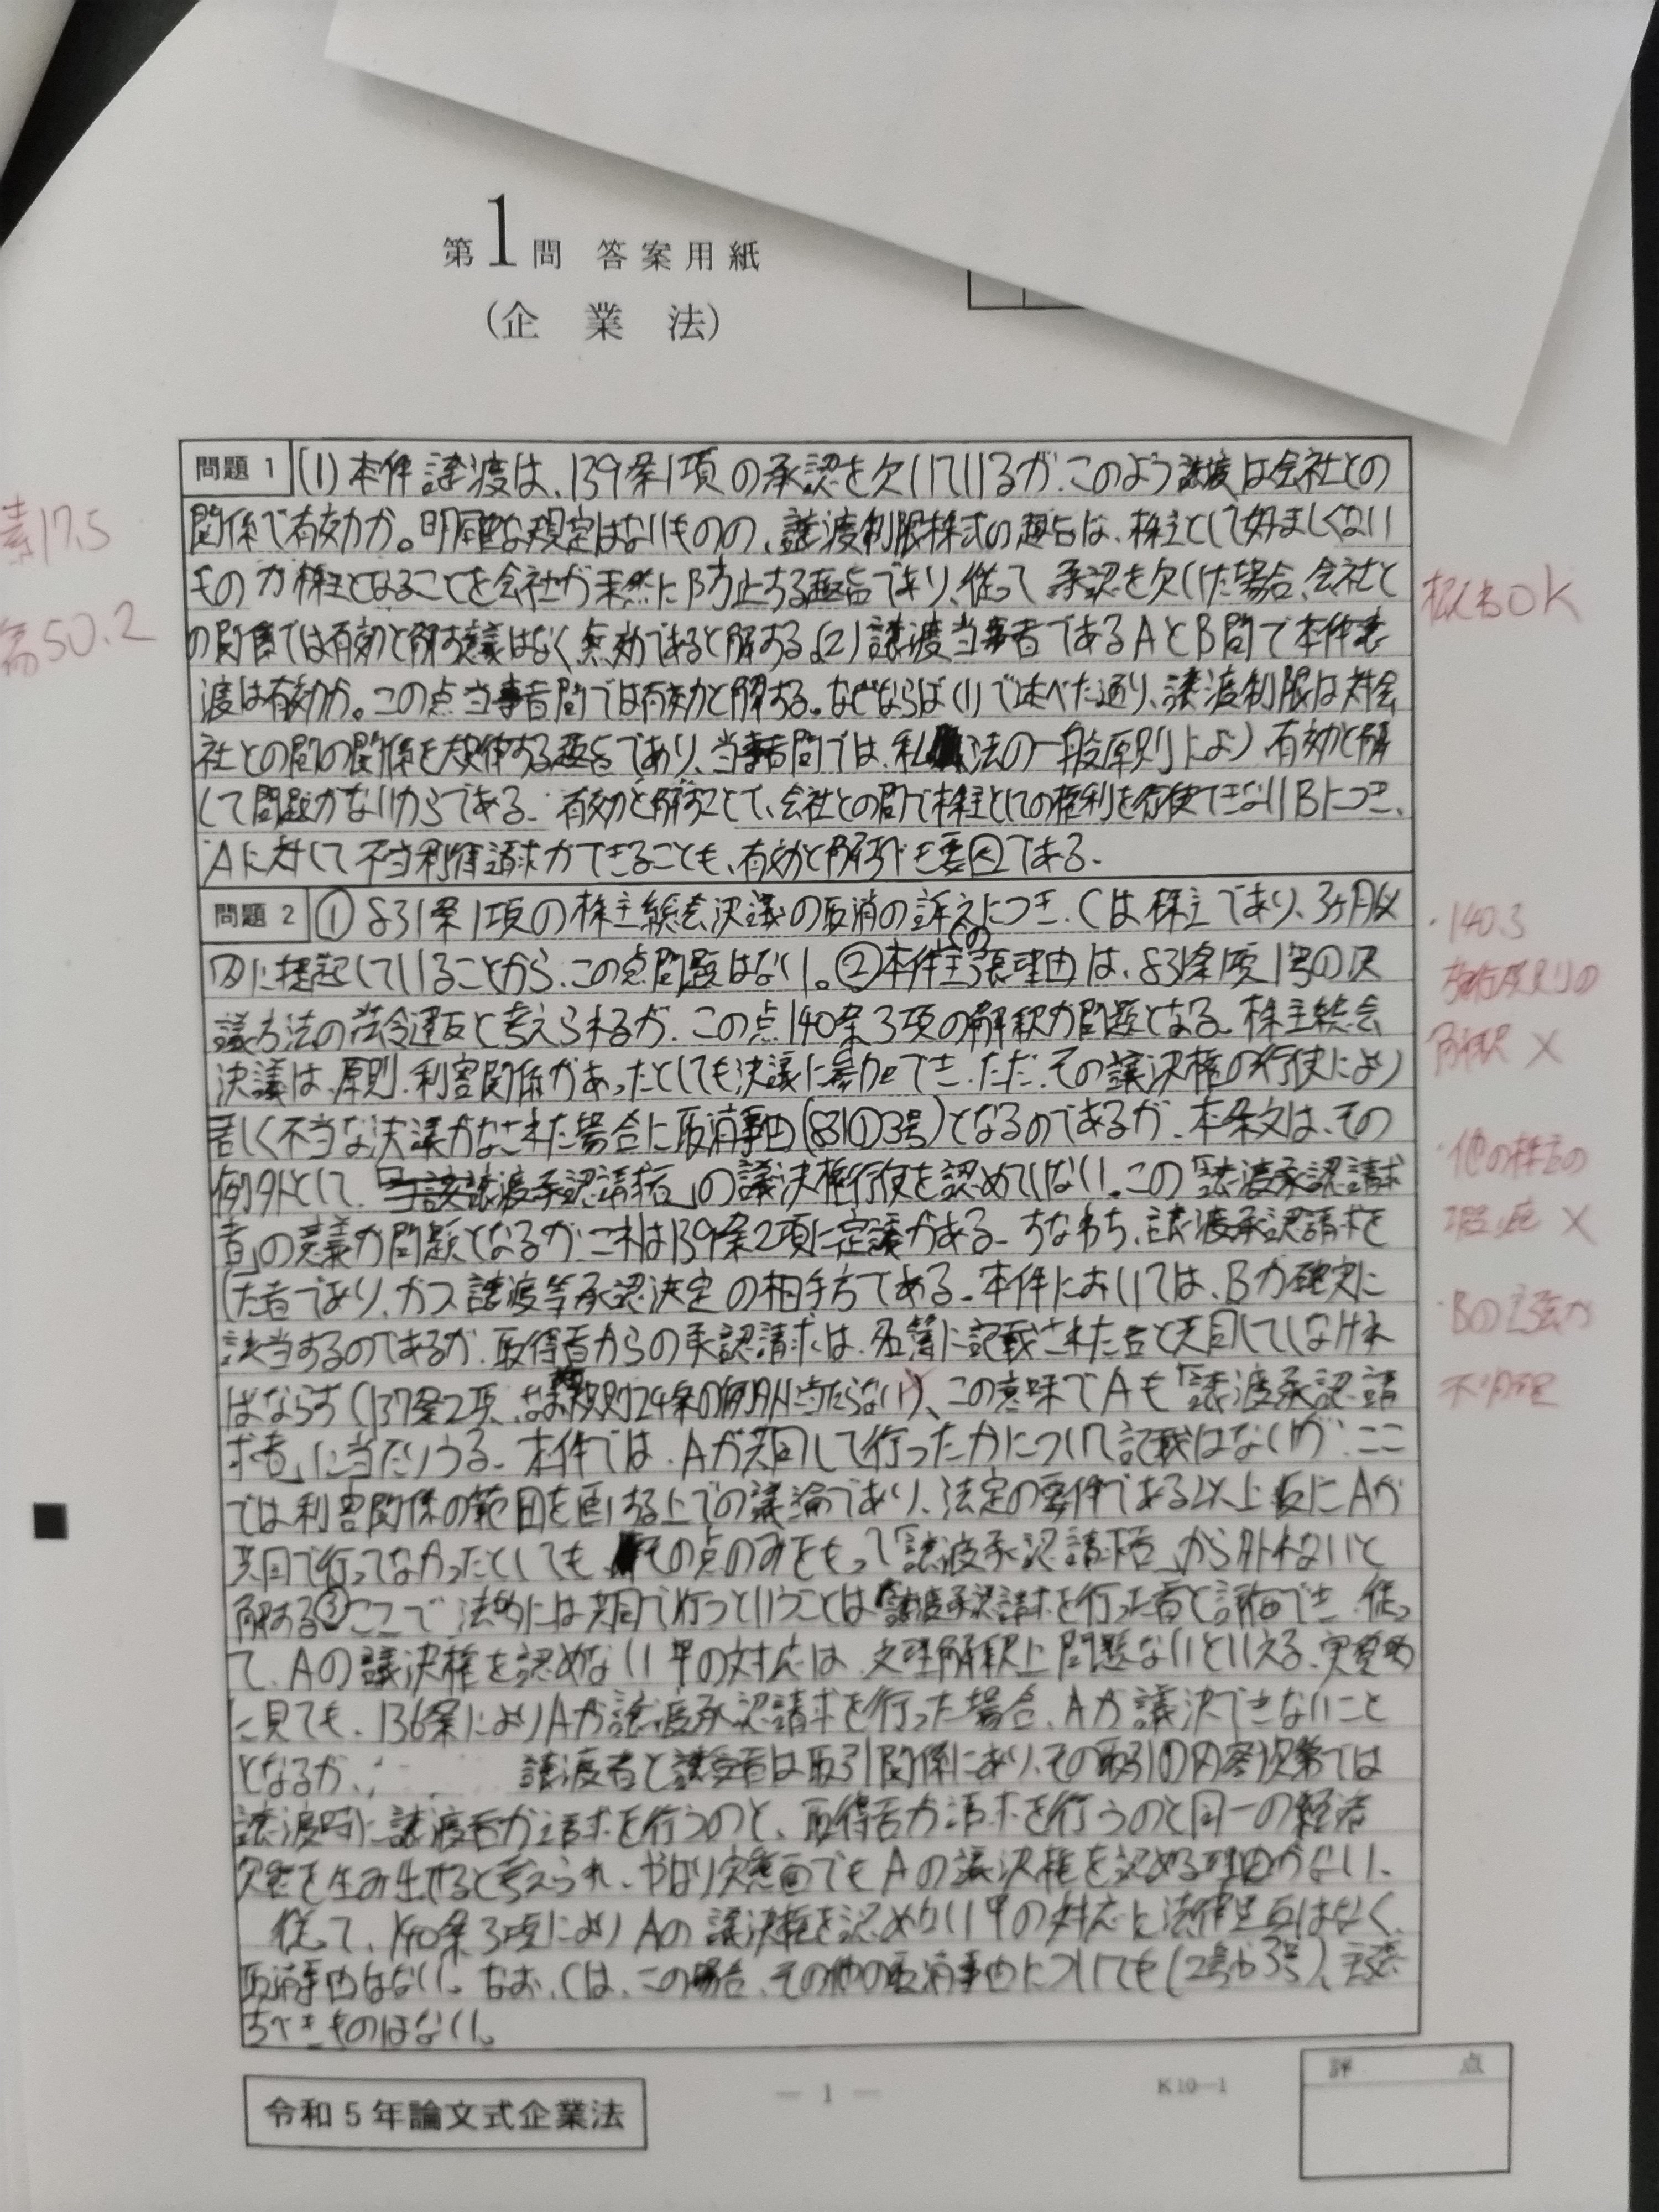 第1問 答案用紙
(企業法)
素17.5
50.2
問題1 (1)本件譲渡は、139条1項の承認を欠いているが、このよう譲渡は会社との
関係で有効か。明確な規定はないものの、譲渡制限株式の趣旨は、株主として好ましくない
もの が株主となることを会社が未然に防止する趣旨であり、従って 承認を欠いた場合、会社と
の関係では有効と解す意義はなく無効であると解する。(2)譲渡当事者であるAとB間で本件譲
渡は有効か。この点当事者間では有効と解する。なぜならば(1)で述べた通り、譲渡制限は対会
社との間の関係を規律する趣旨であり、当事者間では、私法の一般原則により 有効と解
して問題がないからである。有効と解すことで、会社との間で株主としての権利を行使できないBにつき、
Aに対して不当利得請求ができることも、有効と解すべき要因である。
株もOK
問題2 ①831条1項の株主総会決議の取消の訴えにつき、Cは株主であり、3ヶ月以
内に提起していることから、この点問題はない。②本件の主張理由は、831条1項1号の決
議方法の法令違反と考えられるが、この点140条3項の解釈が問題となる。株主総会
決議は、原則、利害関係があったとしても決議に参加でき、ただ、その議決権の行使により
著しく不当な決議がなされた場合に取消事由(831①3号)となるのであるが、本条文は、その
例外として、「当該譲渡承認請求者」の議決権行使を認めていない。この「譲渡承認請求
者」の意義が問題となるが、これは139条2項に定義がある。すなわち、譲渡承認請求を
した者であり、かつ譲渡等承認決定の相手方である。本件においては、Bが確実に
該当するのであるが、取得者からの承認請求は、名簿に記載された者と共同してしなけれ
ばならず(137条2項、なお規則24条の例外に当たらない)、この意味でAも「譲渡承認請
求者」に当たりうる。本件では、Aが共同して行ったかについて記載はないが、ここ
では利害関係の範囲を画する上での議論であり、法定の要件である以上仮にAが
共同で行ってなかったとしても、その点のみをもって「譲渡承認請求者」から外れないと
解する③ここで 法的には共同で行うということは譲渡承認請求を行った者と評価でき、従っ
て、Aの議決権を認めない甲の対応は、文理解釈上問題ないといえる。実質的
に見ても、136条によりAが譲渡承認請求を行った場合、Aが議決できないこと
となるが、譲渡者と譲受者は取引関係にあり、その取引の内容次第では
譲渡時に譲渡者が請求を行うのと、取得者が請求を行うのと同一の経済
効果を生み出せると考えられ、やはり実態面でもAの議決権を認める理由がない。
従って、140条3項によりAの議決権を認めない甲の対応に法律違反はなく、
取消事由はない。なお、Cは、この場合、その他の取消事由についても(2号や3号)、主張
すべきものはない。
・140.3
施行規則の
解釈 ×
・他の株主の
瑕疵 ×
・Bの主張が
不明理
令和5年論文式企業法
— 1 —
K10—1
評 点